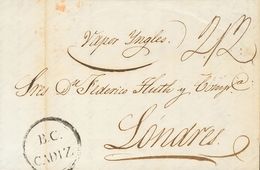 Vapor Yngles.
2/2
Sres Dn Federico Huth y Comp.a
Londres.
B.C.
CADIZ